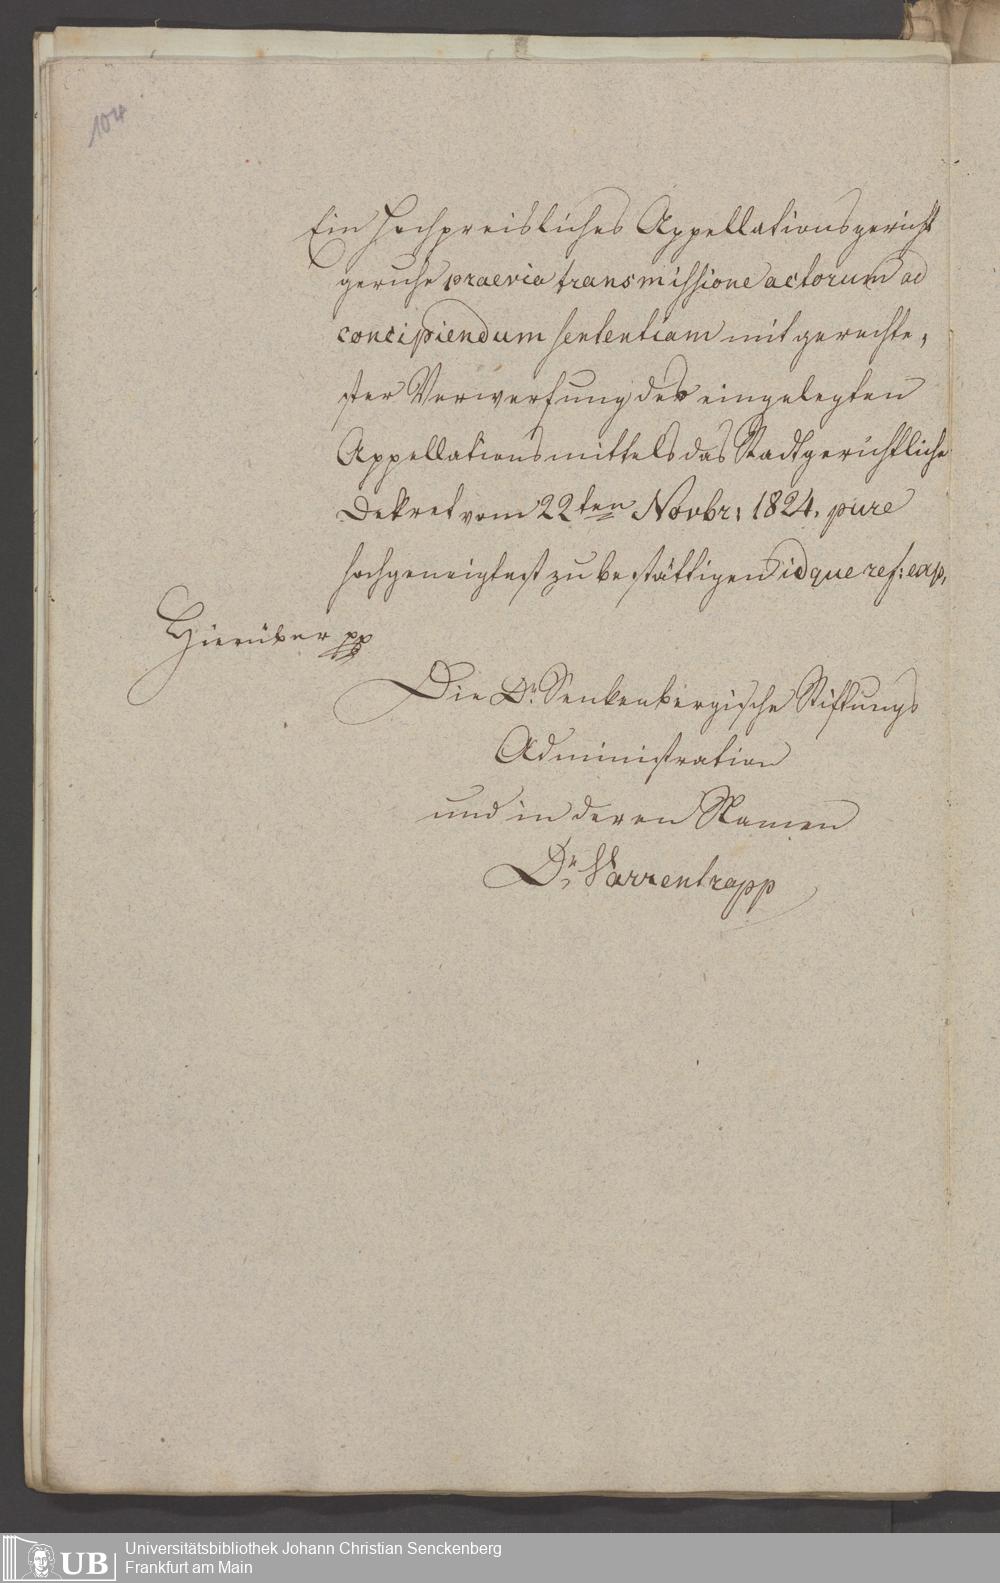 104
Ein Hochpreisliches Appellationsgericht
geruhe praevia transmissione actorum ad
concipiendum sententiam mit gerechte-
ster Verwerfung des eingelegten
Appellationsmittels das Stadtgerichtliche
Dekret vom 22ten Novbr: 1824. pure
hochgeneigtest zu bestättigen idque ref: exp.
Hierüber pp
Die Dr. Senkenbergische Stiftungs
Administration
und in deren Namen
Dr. Varrentrapp
UB Universitätsbibliothek Johann Christian Senckenberg
Frankfurt am Main